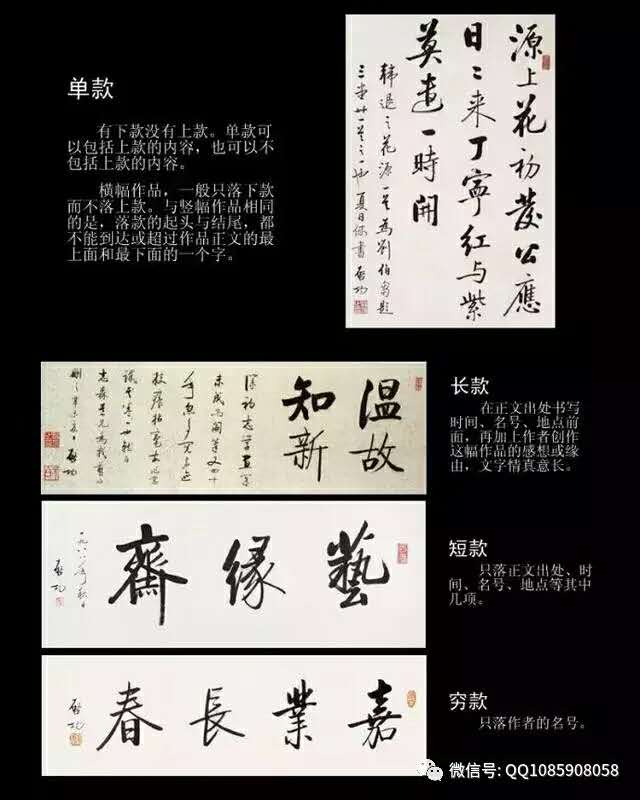 单款
有下款没有上款。单款可
以包括上款的内容，也可以不
包括上款的内容。
横幅作品，一般只落下款
而不落上款。与竖幅作品相同
的是，落款的起头与结尾，都
不能到达或超过作品正文的最
上面和最下面的一个字。
源上花初發公應
日〻来丁寧紅与紫
莫遣一時開
韓退之花源一首為劉伯芻題
三堂廿一首之一也夏日偶書啟功
温故
知新
啟功
长款
在正文出处书写
时间、名号、地点前
面，再加上作者创作
这幅作品的感想或缘
由，文字情真意长。
藝緣齋
啟功
短款
只落正文出处、时
间、名号、地点等其中
几项。
嘉業長春
啟功
穷款
只落作者的名号。
微信号: QQ1085908058